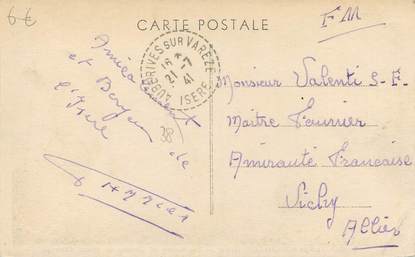 6€
CARTE POSTALE
F M
AUBERIVES SUR VAREZE
16 *
21-7
41
ISERE
Amical
et Bonjour de
l'Isère
38
Monsieur Valenti S-E-
Maitre Fourrier
Amirauté Francaise
Vichy
Allier